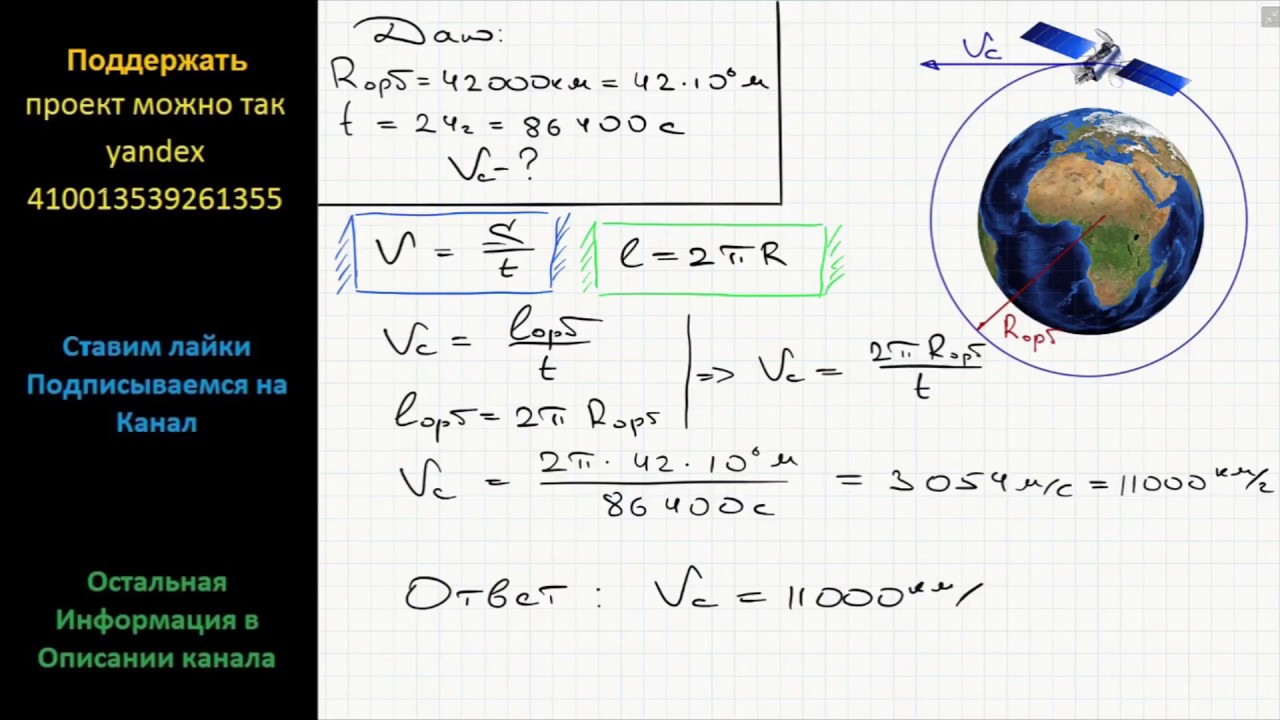 Поддержать
проект можно так
yandex
410013539261355
Ставим лайки
Подписываемся на
Канал
Остальная
Информация в
Описании канала
Дано:
Rорб = 42000км = 42·10⁶м
t = 24ч = 86400с
Vс - ?
V = S/t
l = 2πR
Vс = lорб/t
lорб = 2π Rорб
=> Vс = 2π Rорб/t
Vс = 2π·42·10⁶м/86400с = 3054м/с = 11000км/ч
Ответ: Vс = 11000км/
Vс
Rорб